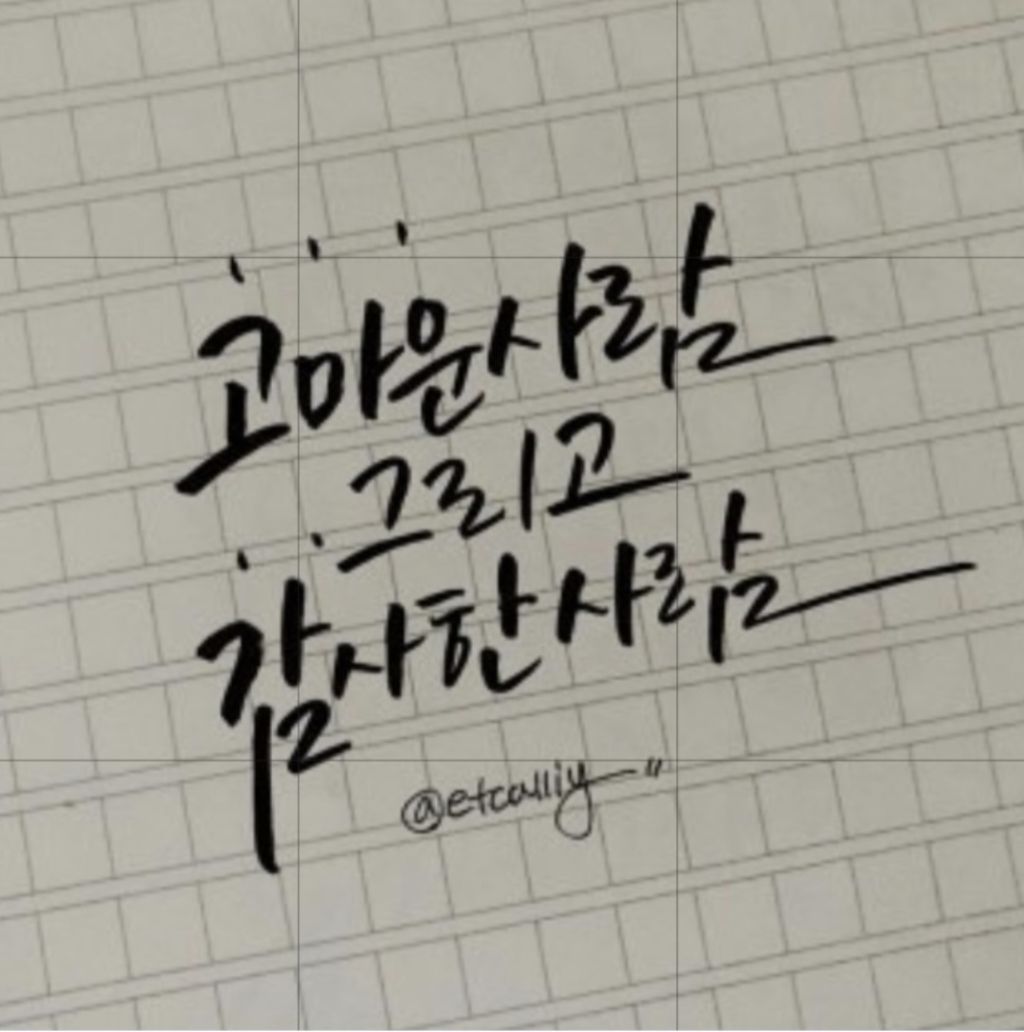 고마운 사람
그리고
감사한 사람
@etcalliy